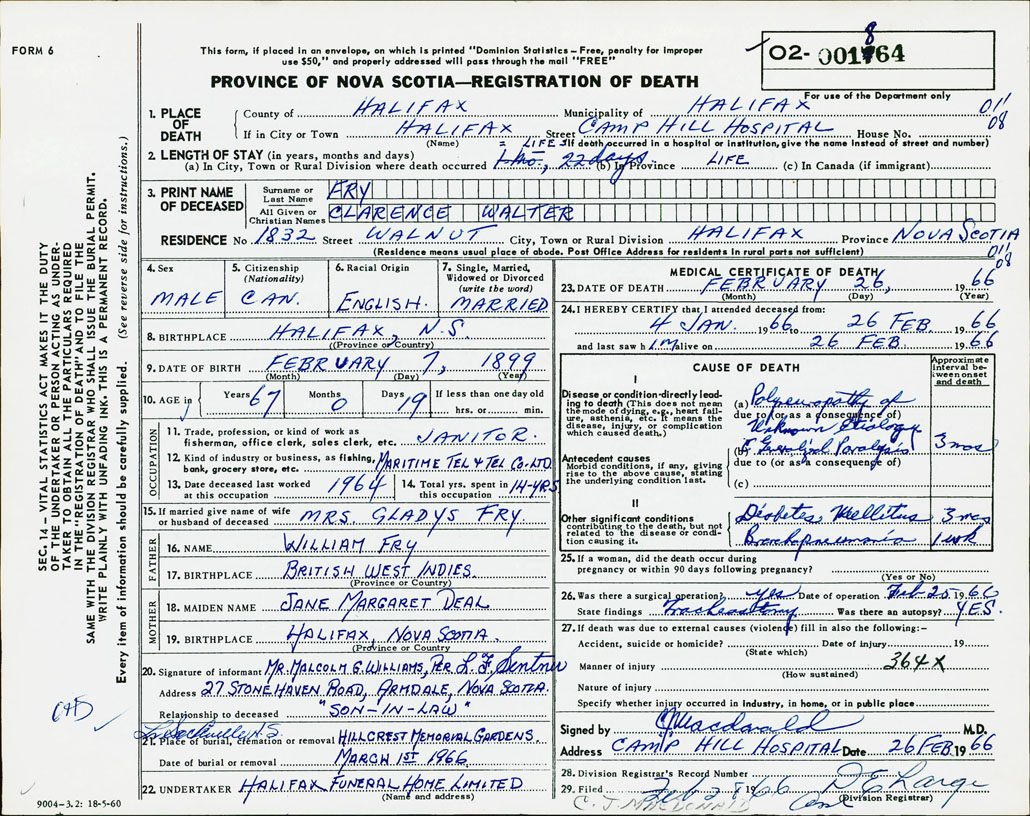 FORM 6
This form, if placed in an envelope, on which is printed "Dominion Statistics – Free, penalty for improper
use $50," and properly addressed will pass through the mail "FREE"
02- 001864
PROVINCE OF NOVA SCOTIA—REGISTRATION OF DEATH
For use of the Department only
1. PLACE OF DEATH
County of HALIFAX Municipality of HALIFAX 011
If in City or Town HALIFAX Street CAMP HILL HOSPITAL House No. 08
(Name) = LIFE If death occurred in a hospital or institution, give the name instead of street and number)
2. LENGTH OF STAY (in years, months and days)
(a) In City, Town or Rural Division where death occurred 1 mo., 22 days (b) In Province LIFE (c) In Canada (if immigrant)
3. PRINT NAME OF DECEASED
Surname or Last Name FRY
All Given or Christian Names CLARENCE WALTER
RESIDENCE No 1832 Street WALNUT City, Town or Rural Division HALIFAX Province NOVA SCOTIA
(Residence means usual place of abode. Post Office Address for residents in rural parts not sufficient) 011 08
4. Sex MALE
5. Citizenship (Nationality) CAN.
6. Racial Origin ENGLISH.
7. Single, Married, Widowed or Divorced (write the word) MARRIED
8. BIRTHPLACE HALIFAX, N.S.
(Province or Country)
9. DATE OF BIRTH FEBRUARY 7, 1899
(Month) (Day) (Year)
10. AGE in Years 67 Months 0 Days 19 If less than one day old hrs. or min.
OCCUPATION
11. Trade, profession, or kind of work as
fisherman, office clerk, sales clerk, etc. JANITOR.
12. Kind of industry or business, as fishing,
bank, grocery store, etc. MARITIME TEL & TEL CO. LTD.
13. Date deceased last worked at this occupation 1964
14. Total yrs. spent in this occupation 14-YRS
15. If married give name of wife
or husband of deceased MRS. GLADYS FRY.
FATHER
16. NAME WILLIAM FRY
17. BIRTHPLACE BRITISH WEST INDIES.
(Province or Country)
MOTHER
18. MAIDEN NAME JANE MARGARET DEAL
19. BIRTHPLACE HALIFAX, NOVA SCOTIA.
(Province or Country)
20. Signature of informant MR. MALCOLM G. WILLIAMS, PER L. F. Sentner
Address 27 STONEHAVEN ROAD, ARMDALE, NOVA SCOTIA.
Relationship to deceased "SON-IN-LAW"
Sackville N.S.
21. Place of burial, cremation or removal HILLCREST MEMORIAL GARDENS.
Date of burial or removal MARCH 1ST 1966
22. UNDERTAKER HALIFAX FUNERAL HOME LIMITED
(Name and address)
MEDICAL CERTIFICATE OF DEATH
23. DATE OF DEATH FEBRUARY 26, 1966
(Month) (Day) (Year)
24. I HEREBY CERTIFY that I attended deceased from:
4 JAN. 1966 to 26 FEB 1966
and last saw h I.M alive on 26 FEB 1966
CAUSE OF DEATH
Approximate interval between onset and death
I
Disease or condition directly leading to death (This does not mean the mode of dying, e.g., heart failure, asthenia, etc. It means the disease, injury, or complication which caused death.)
(a) Polyneuropathy of
due to (or as a consequence of)
Unknown Etiology
Antecedent causes
Morbid conditions, if any, giving rise to the above cause, stating the underlying condition last.
(b) Paralysis 3 mos
due to (or as a consequence of)
(c)
II
Other significant conditions
contributing to the death, but not related to the disease or condition causing it.
Diabetes Mellitus 3 mos
Bronchopneumonia 1 wk
25. If a woman, did the death occur during
pregnancy or within 90 days following pregnancy?
(Yes or No)
26. Was there a surgical operation? yes Date of operation Feb 25 1966
State findings Tracheostomy Was there an autopsy? YES.
27. If death was due to external causes (violence) fill in also the following:–
Accident, suicide or homicide? Date of injury 19
(State which)
Manner of injury 364X
(How sustained)
Nature of injury
Specify whether injury occurred in industry, in home, or in public place
Signed by CJ Macdonald M.D.
Address CAMP HILL HOSPITAL Date 26 FEB 1966
28. Division Registrar's Record Number
29. Filed Feb 28 1966 D E Large
(Division Registrar)
C. J. MACDONALD
SEC. 14 – VITAL STATISTICS ACT MAKES IT THE DUTY
OF THE UNDERTAKER OR PERSON ACTING AS UNDER-
TAKER TO OBTAIN ALL THE PARTICULARS REQUIRED
IN THE "REGISTRATION OF DEATH" AND TO FILE THE
SAME WITH THE DIVISION REGISTRAR WHO SHALL ISSUE THE BURIAL PERMIT.
WRITE PLAINLY WITH UNFADING INK. THIS IS A PERMANENT RECORD.
Every item of information should be carefully supplied. (See reverse side for instructions.)
9004-3.2: 18-5-60